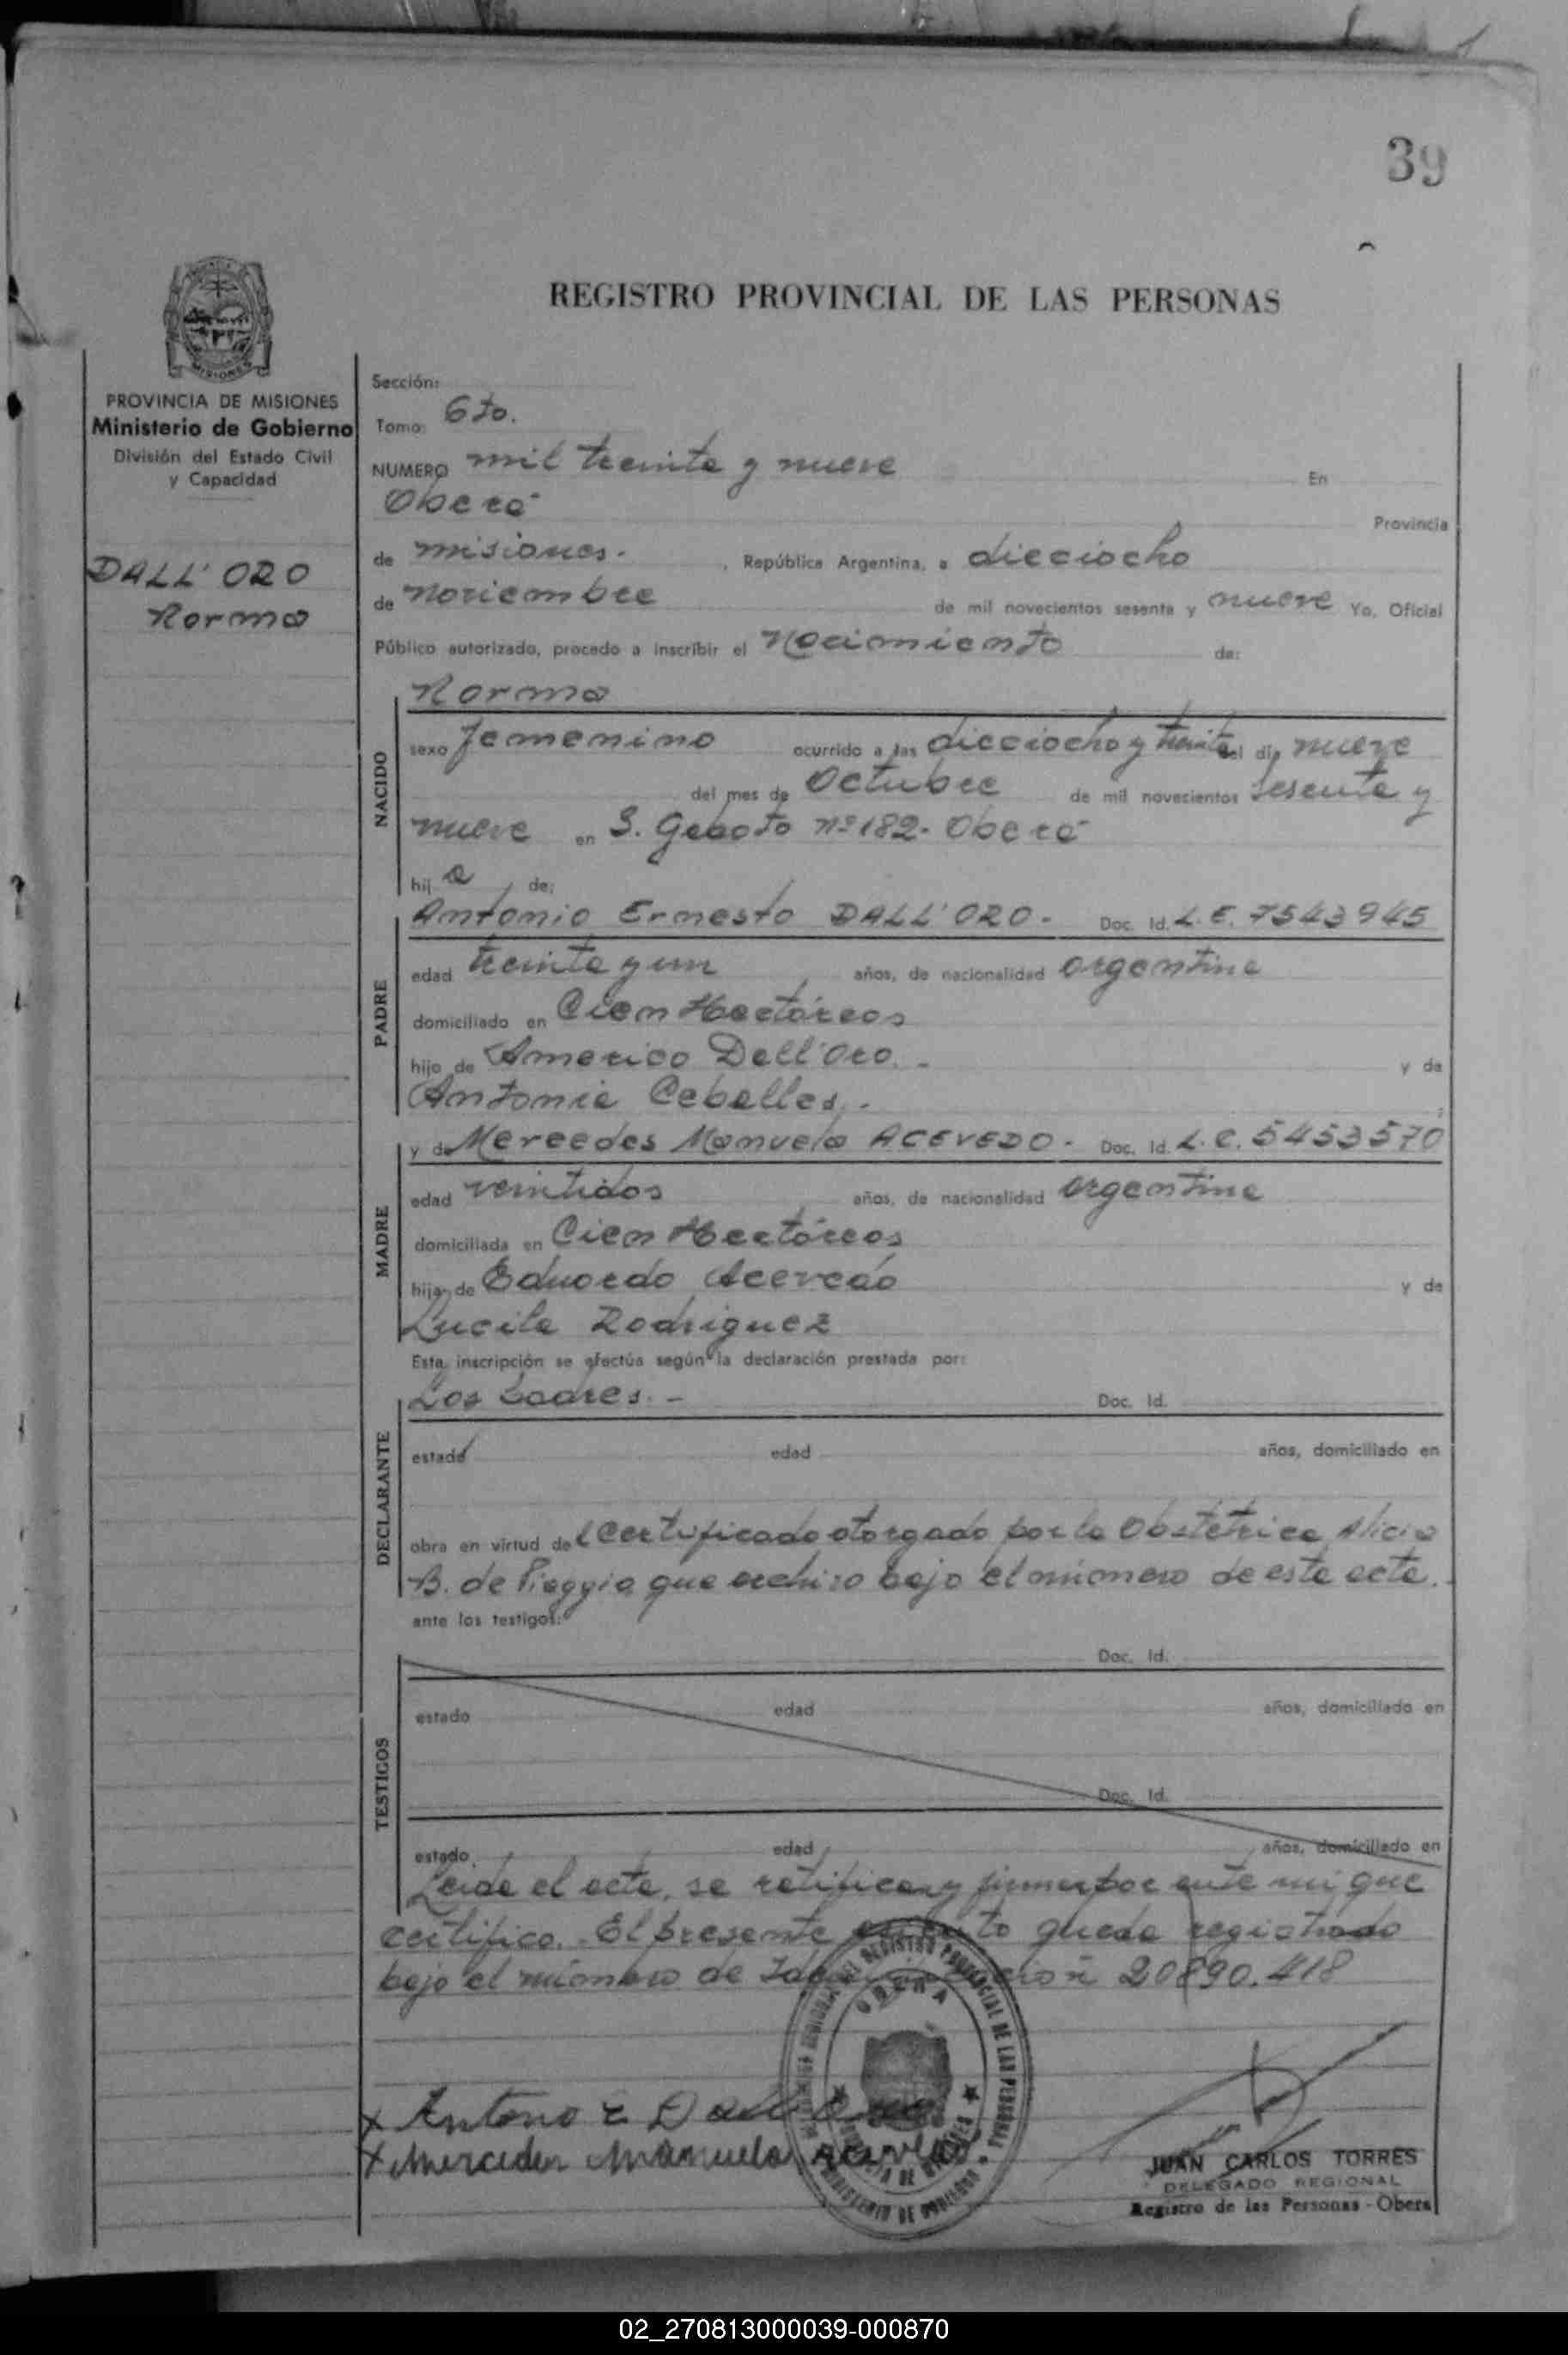 39
REGISTRO PROVINCIAL DE LAS PERSONAS
MISIONES
PROVINCIA DE MISIONES
Ministerio de Gobierno
División del Estado Civil
y Capacidad
DALL' ORO
Norma
Sección:
Tomo: 6to.
NUMERO mil treinta y nueve En
Oberá Provincia
de misiones. , República Argentina, a dieciocho
de noviembre de mil novecientos sesenta y nueve Yo, Oficial
Público autorizado, procedo a inscribir el Nacimiento de:
Norma
NACIDO
sexo femenino ocurrido a las dieciocho y treinta del día nueve
del mes de Octubre de mil novecientos sesenta y
nueve en S. Gaboto nº 182. Oberá
hij a de:
PADRE
Antonio Ernesto DALL' ORO. Doc. Id. L.E. 7543945
edad treinta y un años, de nacionalidad argentina
domiciliado en Cien Hectáreas
hijo de Americo Dall'Oro. - y de
Antonia Ceballes. -
MADRE
y de Mercedes Manuela ACEVEDO - Doc. Id. L.C. 5453570
edad veintidos años, de nacionalidad argentina
domiciliada en Cien Hectáreas
hija de Eduardo Acevedo y de
Lucila Rodriguez
Esta inscripción se efectúa según la declaración prestada por:
DECLARANTE
Los Padres. - Doc. Id.
estado edad años, domiciliado en
obra en virtud del Certificado otorgado por la Obstétrica Alicia
B. de Piaggio que archivo bajo el número de este acta.
ante los testigos:
TESTIGOS
Doc. Id.
estado edad años, domiciliado en
Doc. Id.
estado edad años, domiciliado en
Leida el acta, se ratifican y firman por ante mi que
certifico. El presente queda registrado
bajo el número de 20890.418
OBERA
Antonio E Dall
Mercedes Manuela Acevedo
JUAN CARLOS TORRES
DELEGADO REGIONAL
Registro de las Personas - Obera
02_270813000039-000870